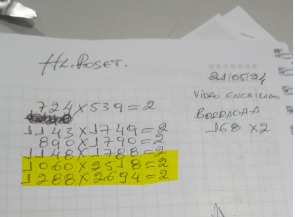 HL. POSET.
21/05/24
VIDRO ENCAIXADO
BORRACHA
168 X2
724X539=2
1143X1749=2
890X1790=2
1148X1788=2
1060X2518=2
1288X2694=2